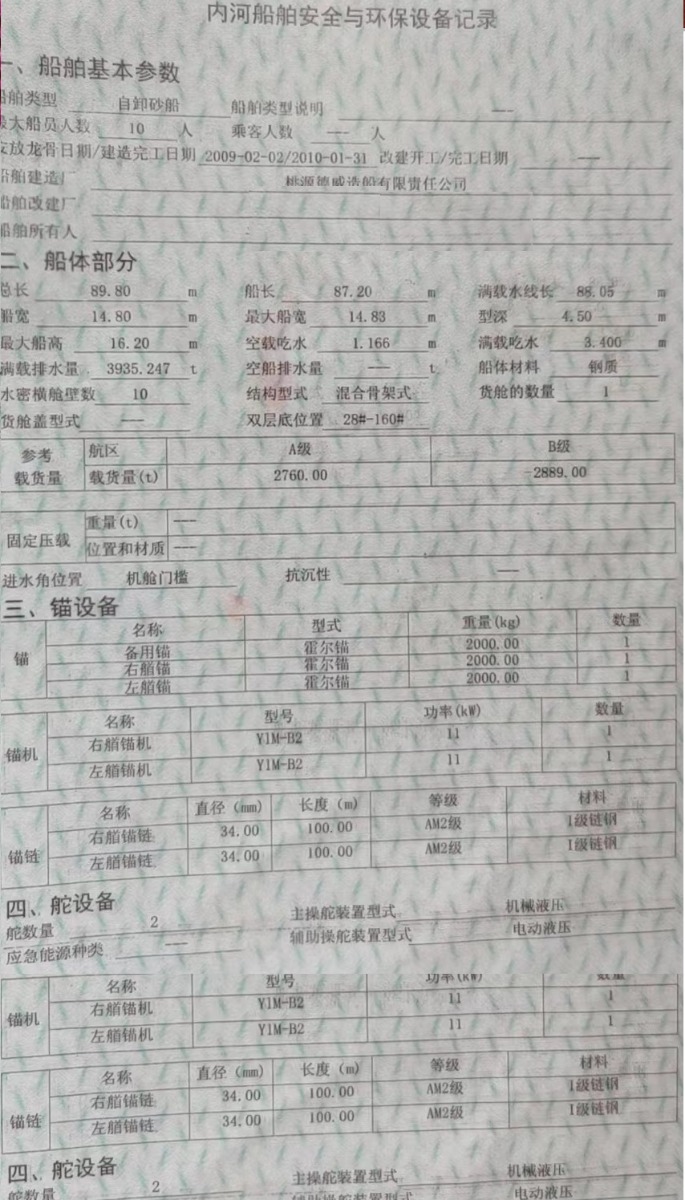 内河船舶安全与环保设备记录
一、船舶基本参数
船舶类型 自卸砂船 船舶类型说明 ---
最大船员人数 10 人 乘客人数 --- 人
安放龙骨日期/建造完工日期 2009-02-02/2010-01-31 改建开工/完工日期 ---
船舶建造厂 桃源德威造船有限责任公司
船舶改建厂
船舶所有人
二、船体部分
总长 89.80 m 船长 87.20 m 满载水线长 88.05 m
船宽 14.80 m 最大船宽 14.83 m 型深 4.50 m
最大船高 16.20 m 空载吃水 1.166 m 满载吃水 3.400 m
满载排水量 3935.247 t 空船排水量 --- t 船体材料 钢质
水密横舱壁数 10 结构型式 混合骨架式 货舱的数量 1
货舱盖型式 --- 双层底位置 28#-160#
参考载货量 航区 A级 B级
载货量(t) 2760.00 2889.00
固定压载 重量(t) ---
位置和材质 ---
进水角位置 机舱门槛 抗沉性 ---
三、锚设备
锚 名称 型式 重量(kg) 数量
备用锚 霍尔锚 2000.00 1
右艏锚 霍尔锚 2000.00 1
左艏锚 霍尔锚 2000.00 1
锚机 名称 型号 功率(kW) 数量
右艏锚机 Y1M-B2 11 1
左艏锚机 Y1M-B2 11 1
锚链 名称 直径(mm) 长度(m) 等级 材料
右艏锚链 34.00 100.00 AM2级 1级链钢
左艏锚链 34.00 100.00 AM2级 1级链钢
四、舵设备
舵数量 2 主操舵装置型式 机械液压
应急能源种类 --- 辅助操舵装置型式 电动液压
锚机 名称 型号 功率(kW) 数量
右艏锚机 Y1M-B2 11 1
左艏锚机 Y1M-B2 11 1
锚链 名称 直径(mm) 长度(m) 等级 材料
右艏锚链 34.00 100.00 AM2级 1级链钢
左艏锚链 34.00 100.00 AM2级 1级链钢
四、舵设备
主操舵装置型式 机械液压
舵数量 2 辅助操舵装置型式 电动液压